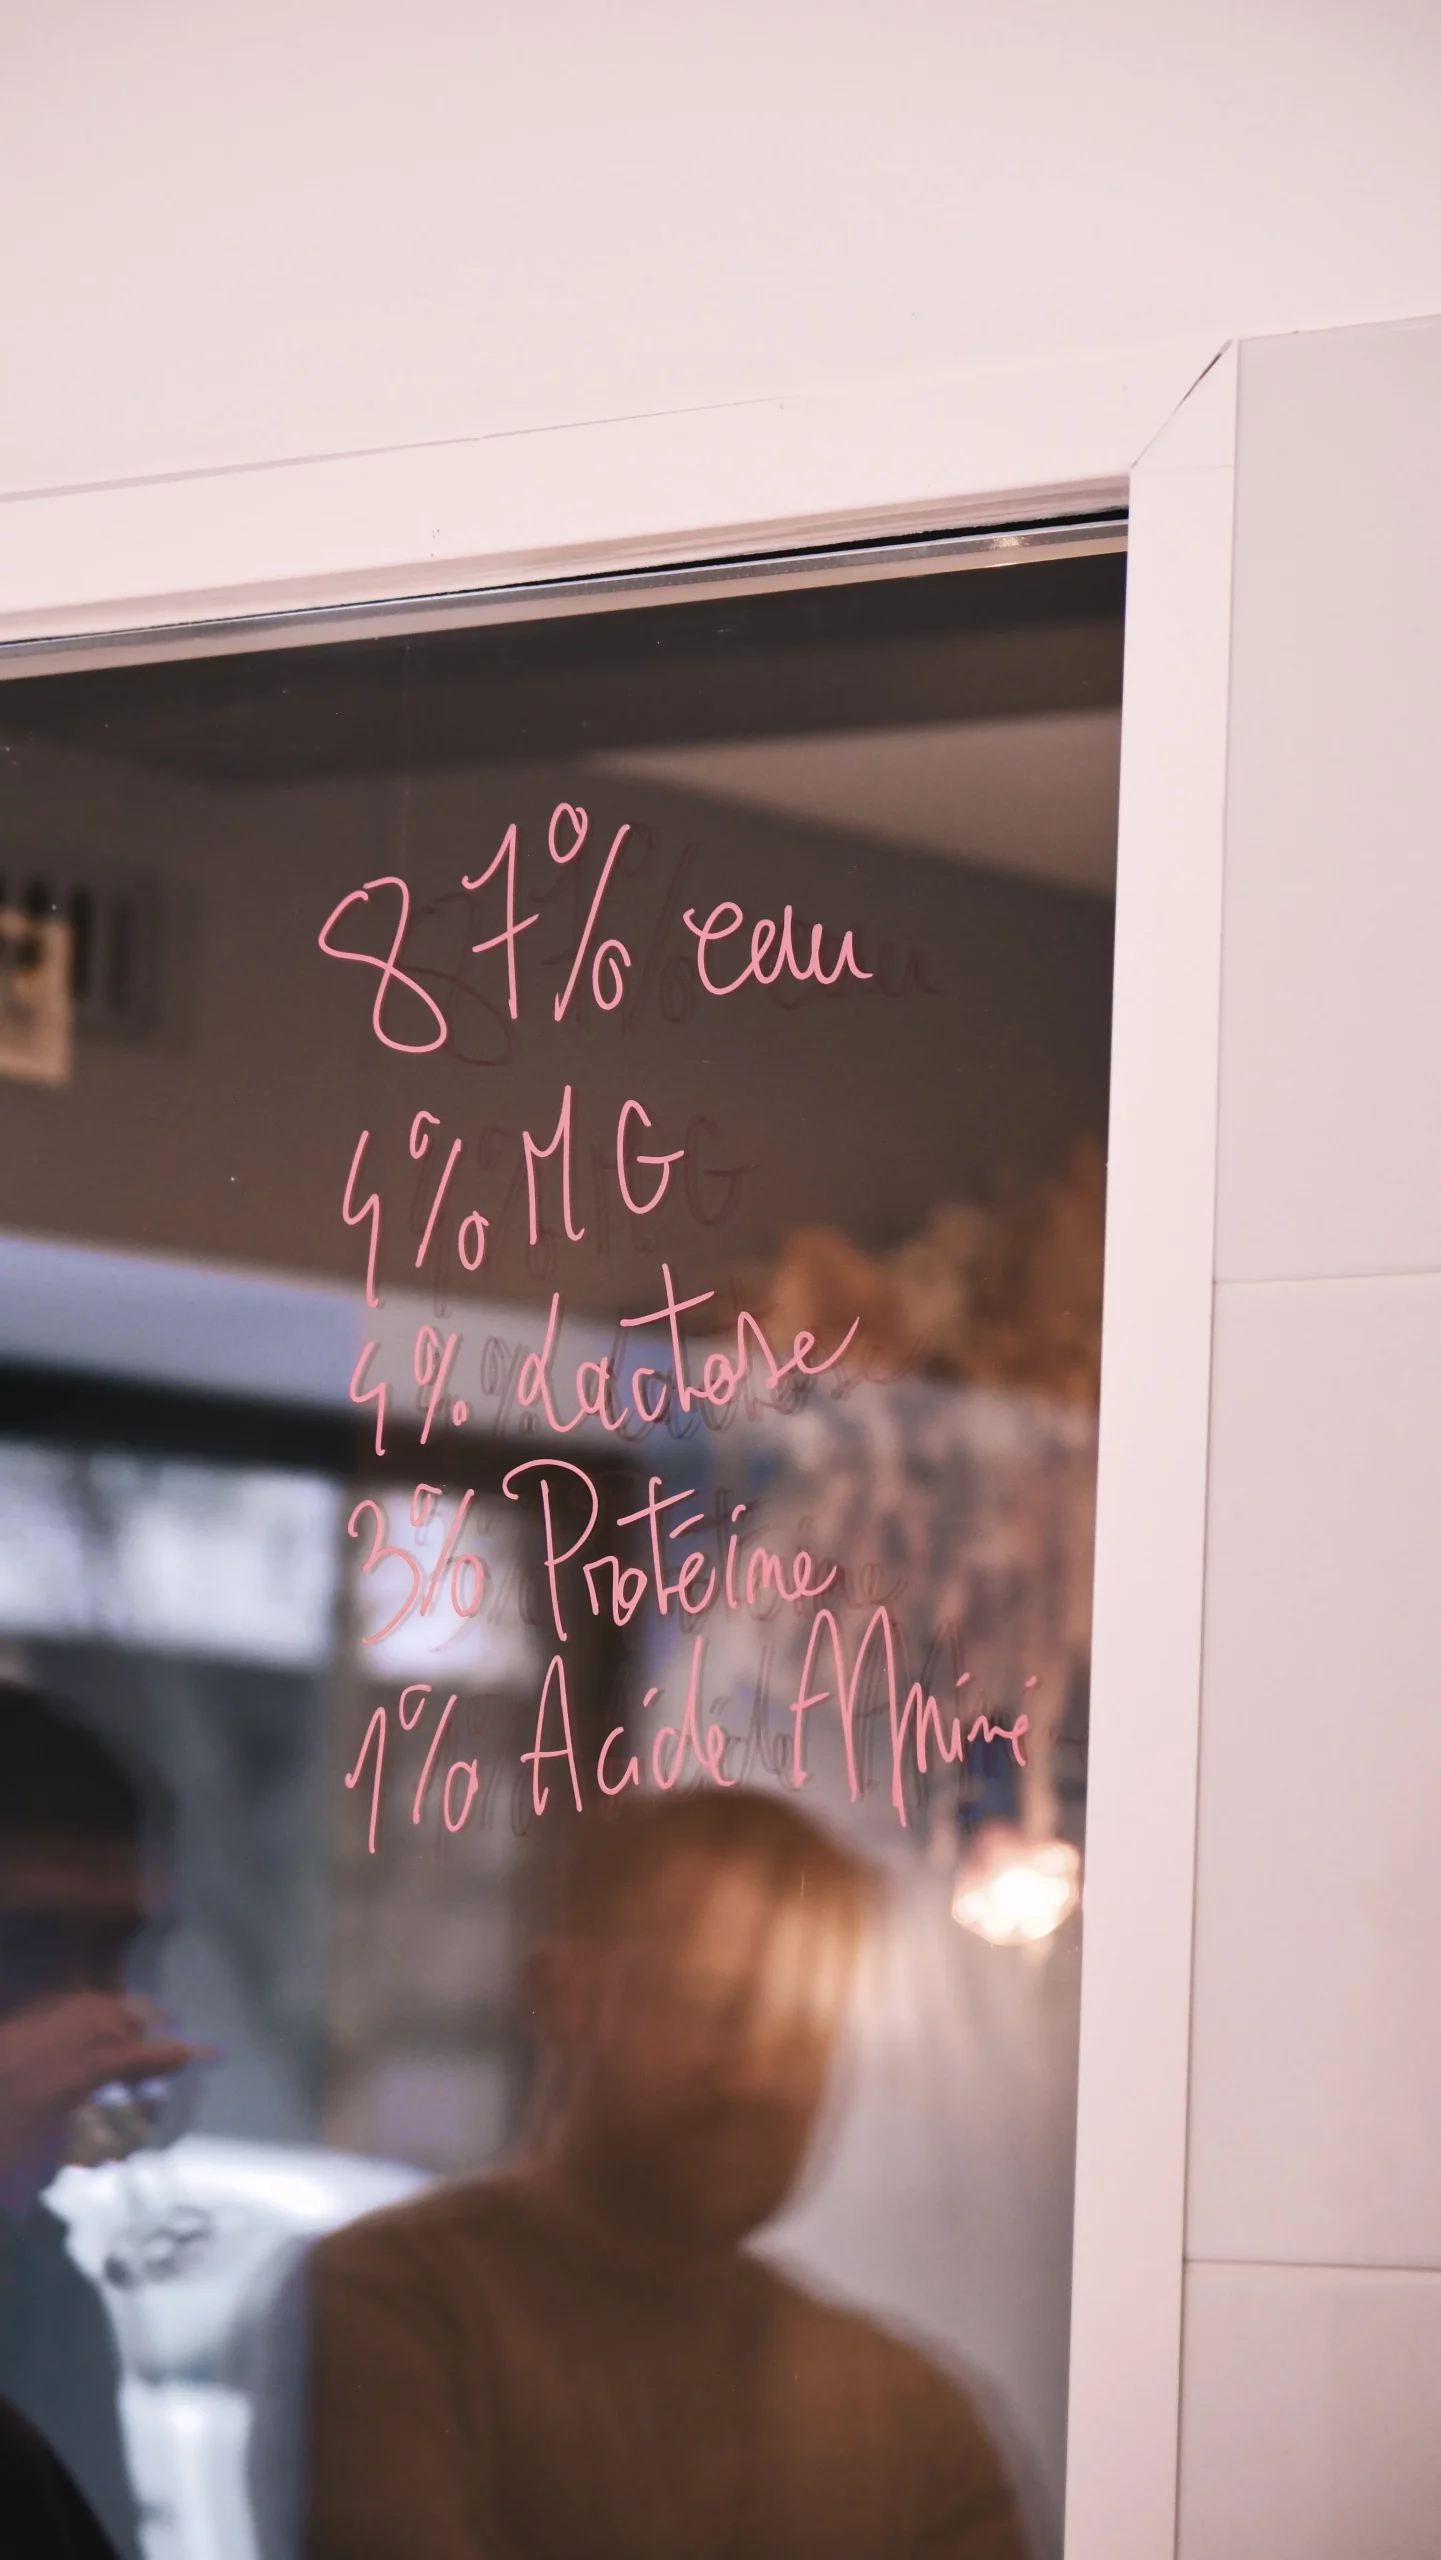 87% eau
4% MG
4% Lactose
3% Protéine
1% Acide Aminé